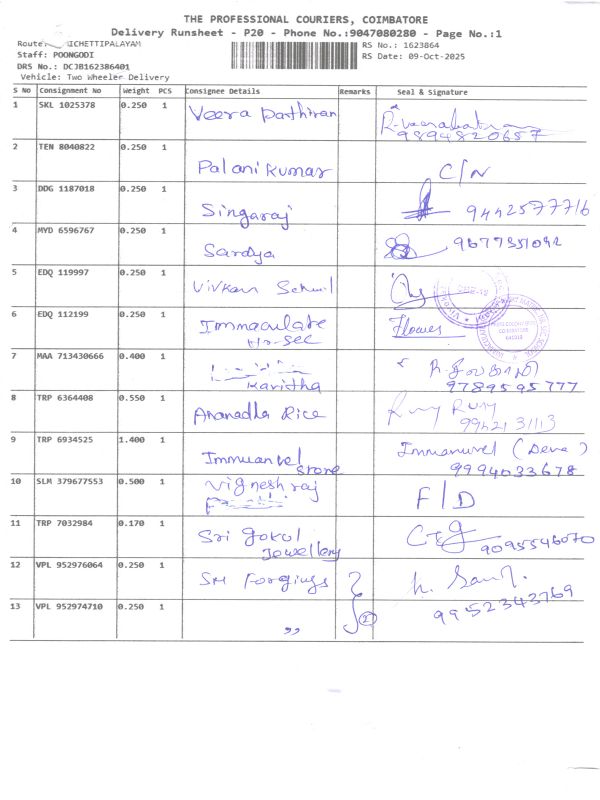 THE PROFESSIONAL COURIERS, COIMBATORE
Delivery Runsheet - P20 - Phone No.:9047080280 - Page No.:1
Route: ICHETTIPALAYAM
RS No.: 1623864
Staff: POONGODI
RS Date: 09-Oct-2025
DRS No.: DCJB162386401
Vehicle: Two Wheeler Delivery
S No Consignment No Weight PCS Consignee Details Remarks Seal & Signature
1 SKL 1025378 0.250 1 Veera Parthiran
9894820657
2 TEN 8040822 0.250 1 Palanikumar C/N
3 DDG 1187018 0.250 1 Singaraj 9442577716
4 MYD 6596767 0.250 1 Sardya
5 EDQ 119997 0.250 1
6 EDQ 112199 0.250 1 Immaculate
Hr-Sec
7 MAA 713430666 0.400 1 Kavitha
9789595777
8 TRP 6364408 0.550 1 Ananadha Rice
9
TRP 6934525 1.400 1 Immuanvel
store
Immanuvel (Deva)
9994033678
10 SLM 379677553 0.500 1 Vignesh raj F/D
11 TRP 7032984 0.170 1 Sri gokul
Jowellery
9095546070
12 VPL 952976064 0.250 1 SM Forgings
9952343769
13 VPL 952974710 0.250 1 ,, (2)